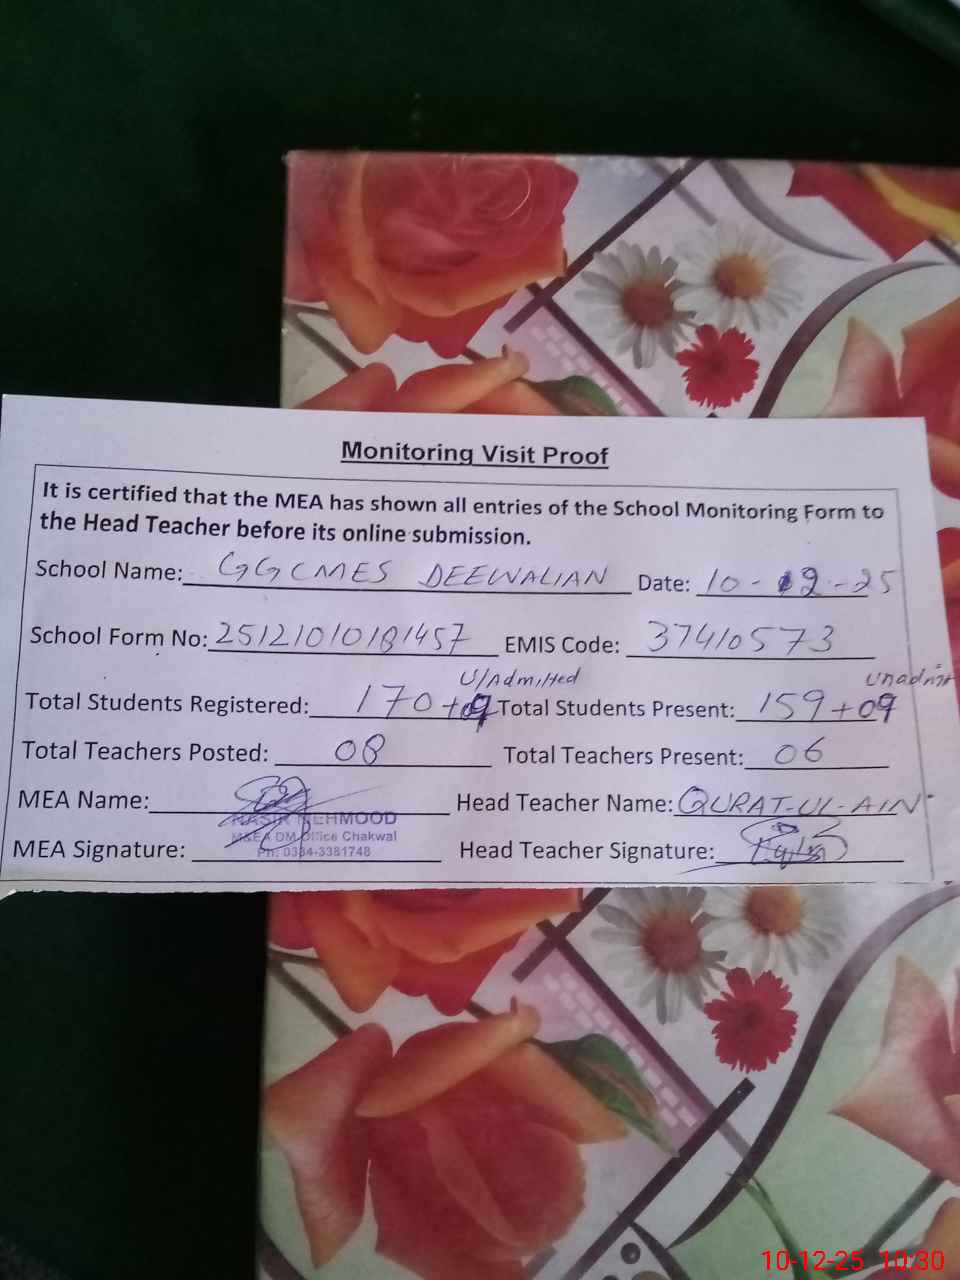 Monitoring Visit Proof
It is certified that the MEA has shown all entries of the School Monitoring Form to
the Head Teacher before its online submission.
School Name: GGCMES DEEWALIAN Date: 10-12-25
School Form No: 25121010181457 EMIS Code: 37410573
U/Admitted
Total Students Registered: 170+09 Total Students Present: 159+09
Total Teachers Posted: 08 Total Teachers Present: 06
MEA Name: Head Teacher Name: QURAT-UL-AIN
NASIR MEHMOOD
M&EA DM Office Chakwal
MEA Signature: Head Teacher Signature:
Ph: 0334-3381748
10-12-25 10:30